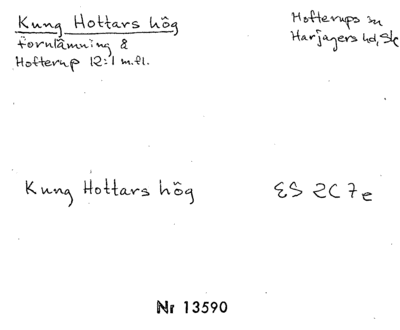 Kung Hottars hög
Fornlämning 8
Hofterup 12:1 m.fl.
Hofterups sn
Harjagers hd, Sk
Kung Hottars hög
ES 2C7e
Nr 13590